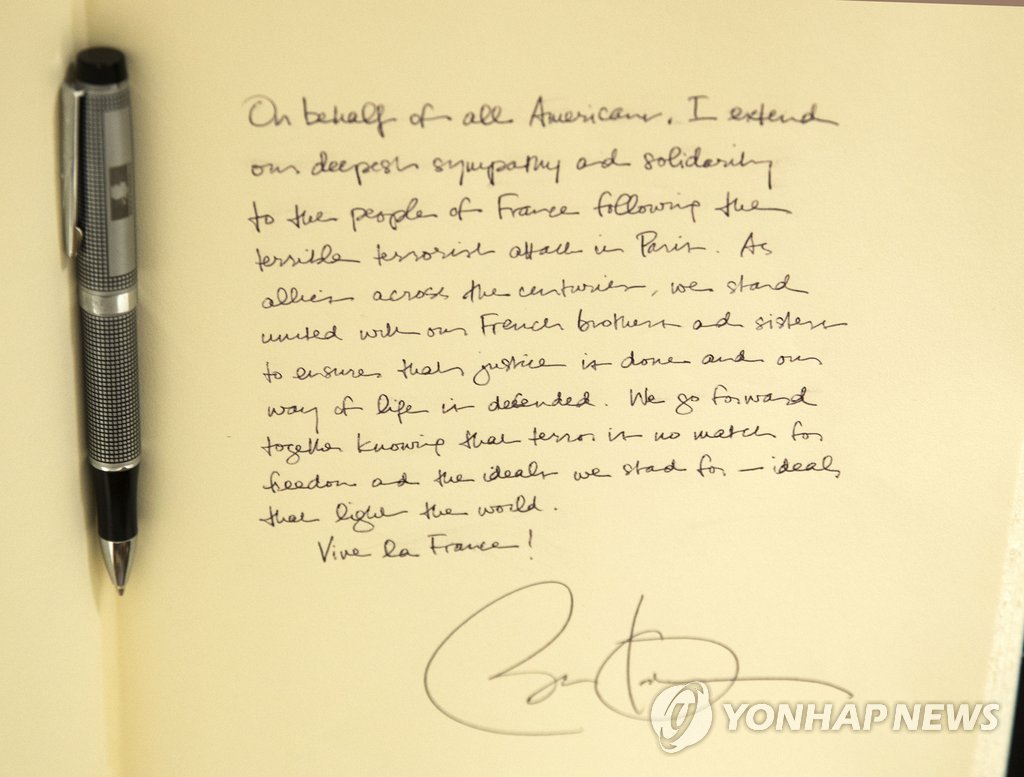 On behalf of all Americans, I extend
our deepest sympathy and solidarity
to the people of France following the
terrible terrorist attack in Paris. As
allies across the centuries, we stand
united with our French brothers and sisters
to ensure that justice is done and our
way of life is defended. We go forward
together knowing that terror is no match for
freedom and the ideals we stand for — ideals
that light the world.
Vive la France!
YONHAP NEWS